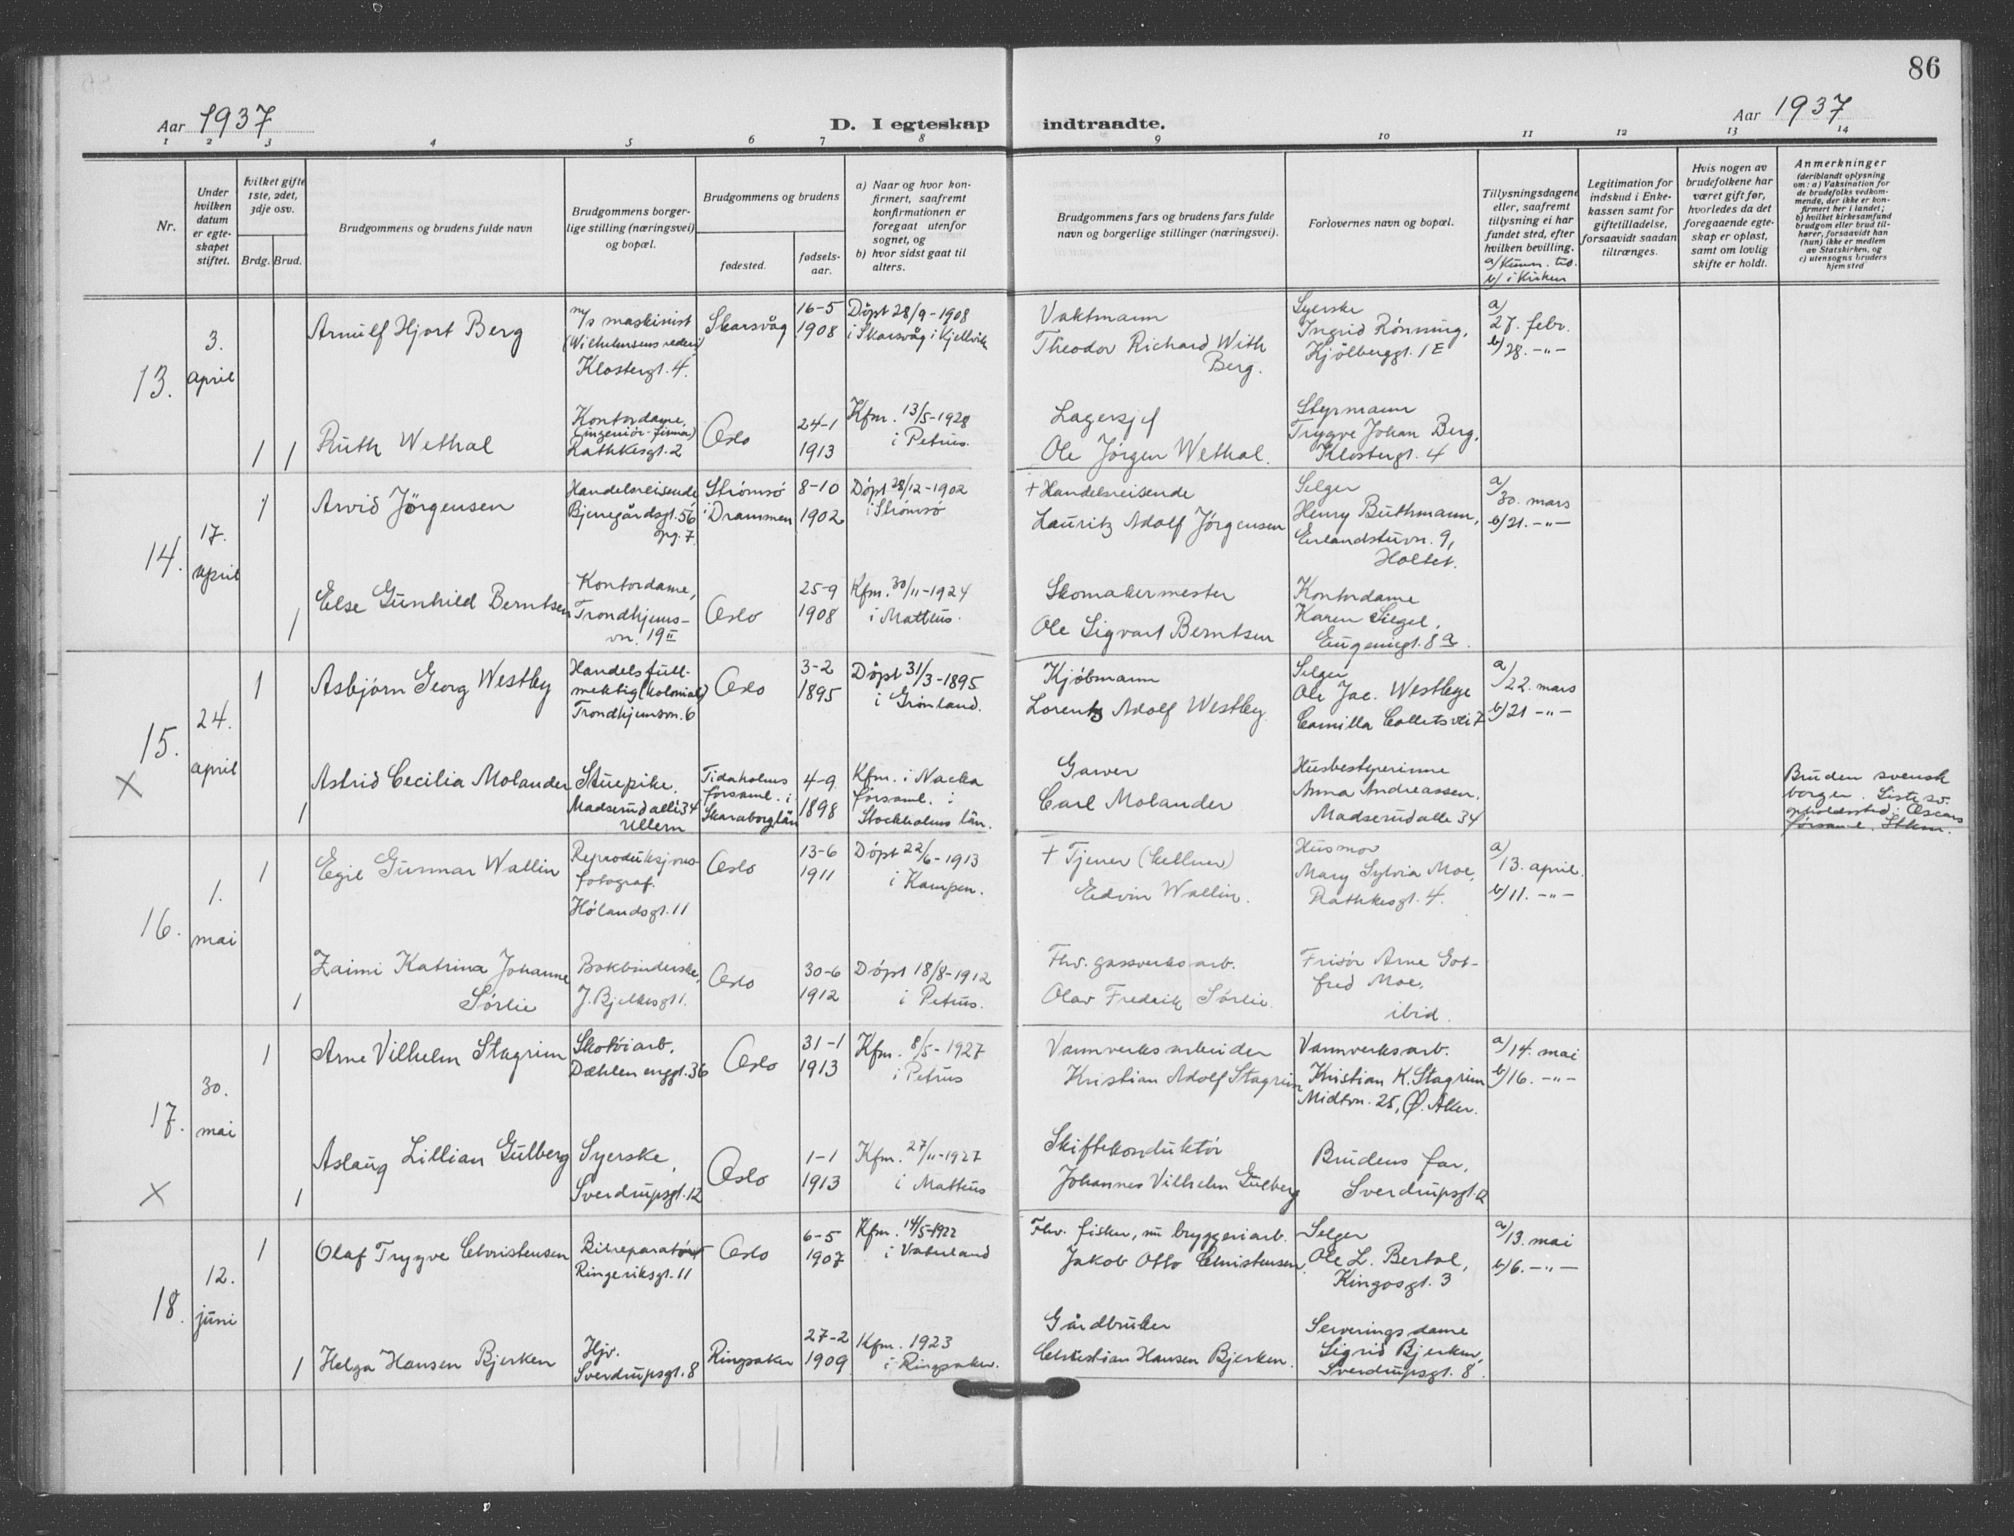 86
Aar 1937
D. I egteskap indtraadte.
Aar 1937
1 2 3 4 5 6 7 8 9 10 11 12 13 14
Nr.
Under
hvilken
datum
er egte-
skapet
stiftet.
Hvilket gifte
1ste, 2det,
3dje osv.
Brdg. Brud.
Brudgommens og brudens fulde navn
Brudgommens borger-
lige stilling (næringsvei)
og bopæl.
Brudgommens og brudens
fødested.
fødsels-
aar.
a) Naar og hvor kon-
firmert, saafremt
konfirmationen er
foregaat utenfor
sognet, og
b) hvor sidst gaat til
alters.
Brudgommens fars og brudens fars fulde
navn og borgerlige stillinger (næringsvei).
Forlovernes navn og bopæl.
Tillysningsdagene
eller, saafremt
tillysning ei har
fundet sted, efter
hvilken bevilling.
a/ Kunn. tid.
b/ i Kirken
Legitimation for
indskud i Enke-
kassen samt for
giftetilladelse,
forsaavidt saadan
tiltrænges.
Hvis nogen av
brudefolkene har
været gift før,
hvorledes da det
foregaaende egte-
skap er opløst,
samt om lovlig
skifte er holdt.
Anmerkninger
(deriblandt oplysning
om: a) Vaksination for
de brudefolks vedkom-
mende, der ikke er kon-
firmert her i landet;
b) hvilket kirkesamfund
brudgom eller brud til-
hører, forsaavidt han
(hun) ikke er medlem
av Statskirken, og
c) utensogns bruders
hjemsted
13.
3.
april
Arnulf Hjort Berg
m/s maskinist
(Wilhelmsens rederi)
Klostergt. 4.
Skarsvåg
16-5
1908
Döpt 28/9-1908
i Skarsvåg i Kjellvik
Vaktmann
Theodor Richard With
Berg.
Syerske
Ingrid Rönning,
Kjölberggt. 1 E
a/
27. febr.
b/28. -"-
1 1
Ruth Wethal
Kontordame,
(ingeniör-firma)
Rathkesgt. 2
Oslo
24-1
1913
Kfm. 13/5-1928
i Petrus.
Lagersjef
Ole Jörgen Wethal.
Styrmann
Trygve Johan Berg,
Klostergt. 4
14.
17.
april
1
Arvid Jörgensen
Handelsreisende
Bjerregårdsgt. 56
opg. 7.
Strömsö
i Drammen
8-10
1902
Döpt 28/12-1902
i Strömsö
+ Handelsreisende
Lauritz Adolf Jörgensen
Selger
Henry Buthmann,
Erlandstuvn. 9,
Holtet.
a/
30. mars
b/21. -"-
1
Else Gunhild Berntsen
Kontordame,
Trondhjems-
vn. 19 II
Oslo
25-9
1908
Kfm. 30/11-1924
i Matteus.
Skomakermester
Ole Sigvart Berntsen
Kontordame
Karen Siegel,
Eugeniegt. 8 a.
15.
X
24.
april
1
Asbjörn Georg Westby
Handelsfull-
mektig (kolonial)
Trondhjemsvn. 6
Oslo
3-2
1895
Döpt 31/3-1895
i Grönland.
Kjöbmann
Lorentz Adolf Westby.
Selger
Ole Jac. Westbye
Camilla Colletsvei 7
a/22. mars
b/21 -"-
1
Astrid Cecilia Molander
Stuepike.
Madserud alle 34
Ullern
Tidaholms
församl. i
Skaraborg län
4-9
1898
Kfm. i Nacka
församl. i
Stockholms län.
Garver
Carl Molander
Husbestyrerinne
Anna Andreassen.
Madserud alle 34
Bruden svensk
borger. Siste sv.
oppholdssted: Oscars
församl. Sthlm.
16.
1.
mai
1
Egil Gunnar Wallin
Reproduksjons-
fotograf.
Hölandsgt. 11
Oslo
13-6
1911
Döpt 22/6-1913
i Kampen.
+ Tjener (kellner)
Edvin Wallin.
Husmor
Mary Sylvia Moe,
Rathkesgt. 4.
a/
13. april.
b/11. -"-
1
Zaimi Katrina Johanne
Sörlie
Bokbinderske,
J. Bjelkesgt 1.
Oslo
30-6
1912
Döpt 18/8-1912
i Petrus.
Fhv. gassverksarb.
Olav Fredrik Sörlie.
Frisör Arne Got-
fred Moe,
ibid.
17.
X
30.
mai
1
Arne Vilhelm Stagrim
Skotöiarb.
Dæhlen enggt. 36
Oslo
31-1
1913
Kfm. 8/5-1927
i Petrus
Vannverksarbeider
Kristian Adolf Stagrim
Vannverksarb.
Kristian K. Stagrim
Midtvn. 25, Ö. Aker.
a/14. mai
b/16. -"-
1
Aslaug Lillian Gulberg
Syerske,
Sverdrupsgt. 12
Oslo
1-1
1913
Kfm. 27/11-1927
i Matteus
Skiftekonduktör
Johannes Vilhelm Gulberg
Brudens far,
Sverdrupsgt. 12
18
12.
juni
1
Olaf Trygve Christensen
Bilreparatör
Ringeriksgt. 11
Oslo
6-5
1907
Kfm. 14/5-1922
i Vaterland
Fhv. fisker, nu bryggeriarb.
Jakob Otto Christensen.
Selger
Ole L. Bertol,
Kingosgt. 3
a/13. mai
b/6. -"-
1
Helga Hansen Bjerken
Hjv.
Sverdrupsgt. 8
Ringsaker
27-2
1909
Kfm. 1923
i Ringsaker.
Gårdbruker
Christian Hansen Bjerken.
Serveringsdame
Sigrid Bjerken,
Sverdrupsgt. 8.